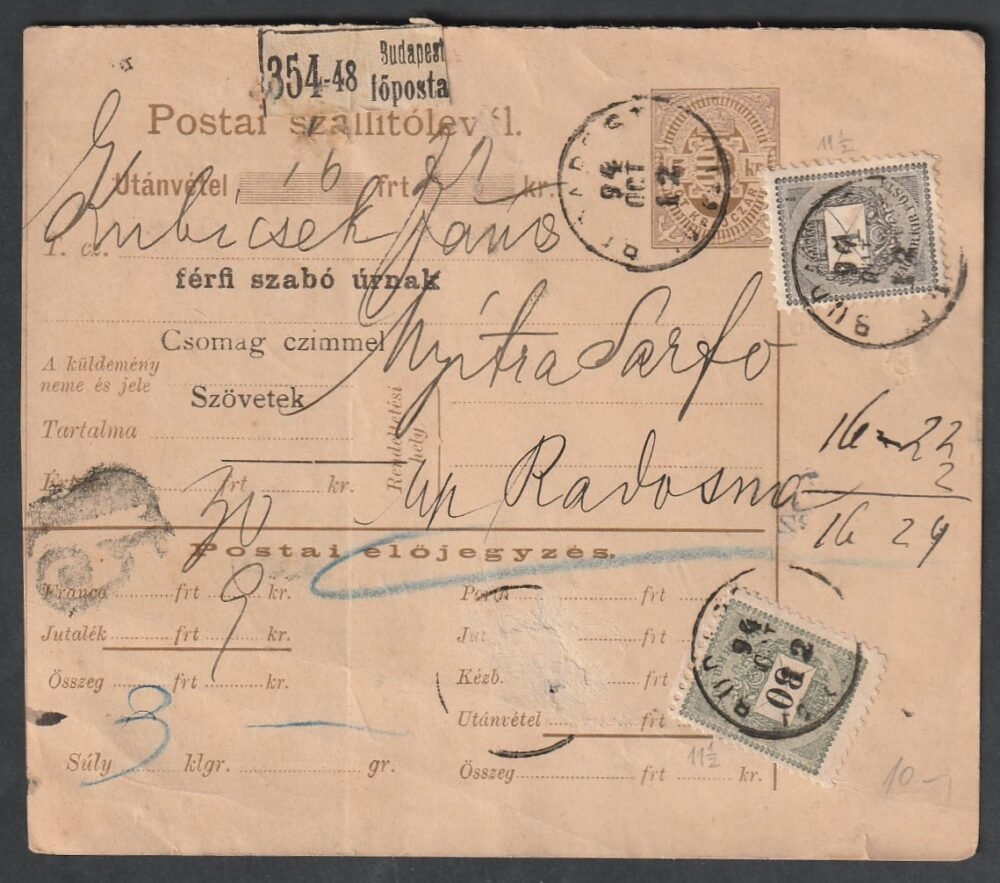 354-48 Budapest főposta
Postai szállítólevél.
Utánvétel 16 frt 22 kr.
T. cz.
férfi szabó úrnak
Csomag czimmel
Nyitra Sarfő
A küldemény
neme és jele
Szövetek
Tartalma
Rendeltetési
hely
frt kr.
30 up Radosna
16-22
2
16 24
Postai előjegyzés.
Franco frt kr.
9
Jutalék frt kr.
Összeg frt kr.
3 —
Súly klgr. gr.
Porto frt
Jut
Kézb.
Utánvétel frt
Összeg frt kr.
BUDAPEST
94
OKT
12
5 kr
BUDAPEST
94
12
BUDAPEST
94
12
30
11½
11½
10-